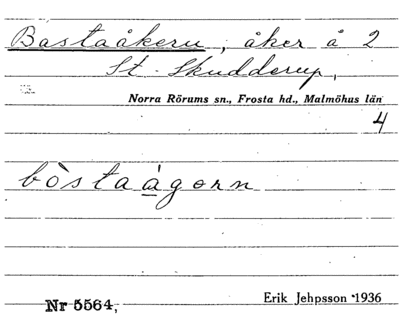 Bastaåkern, åker å 2
St. Skudderup,
Norra Rörums sn., Frosta hd., Malmöhus län
4
bòstaàgorn
Nr 5564,
Erik Jehpsson 1936